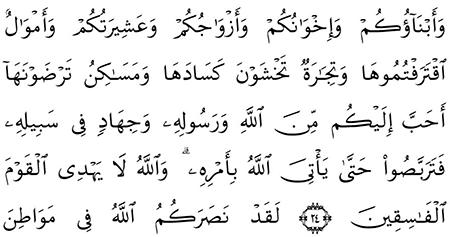 وَأَبْنَآؤُكُمْ وَإِخْوَٰنُكُمْ وَأَزْوَٰجُكُمْ وَعَشِيرَتُكُمْ وَأَمْوَٰلٌ
ٱقْتَرَفْتُمُوهَا وَتِجَٰرَةٌ تَخْشَوْنَ كَسَادَهَا وَمَسَٰكِنُ تَرْضَوْنَهَآ
أَحَبَّ إِلَيْكُم مِّنَ ٱللَّهِ وَرَسُولِهِۦ وَجِهَادٍ فِى سَبِيلِهِۦ
فَتَرَبَّصُوا۟ حَتَّىٰ يَأْتِىَ ٱللَّهُ بِأَمْرِهِۦ ۗ وَٱللَّهُ لَا يَهْدِى ٱلْقَوْمَ
ٱلْفَٰسِقِينَ ﴿٢٤﴾ لَقَدْ نَصَرَكُمُ ٱللَّهُ فِى مَوَاطِنَ